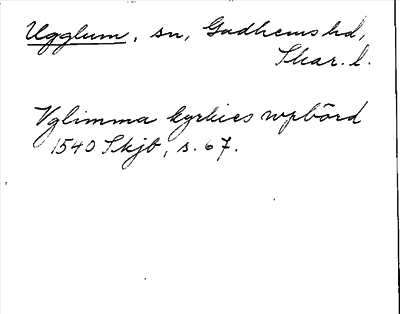 Ugglum, sn, Gudhems hd,
Skar. l.
Vglimma kyrkies wpbörd
1540 Skjb, s. 67.